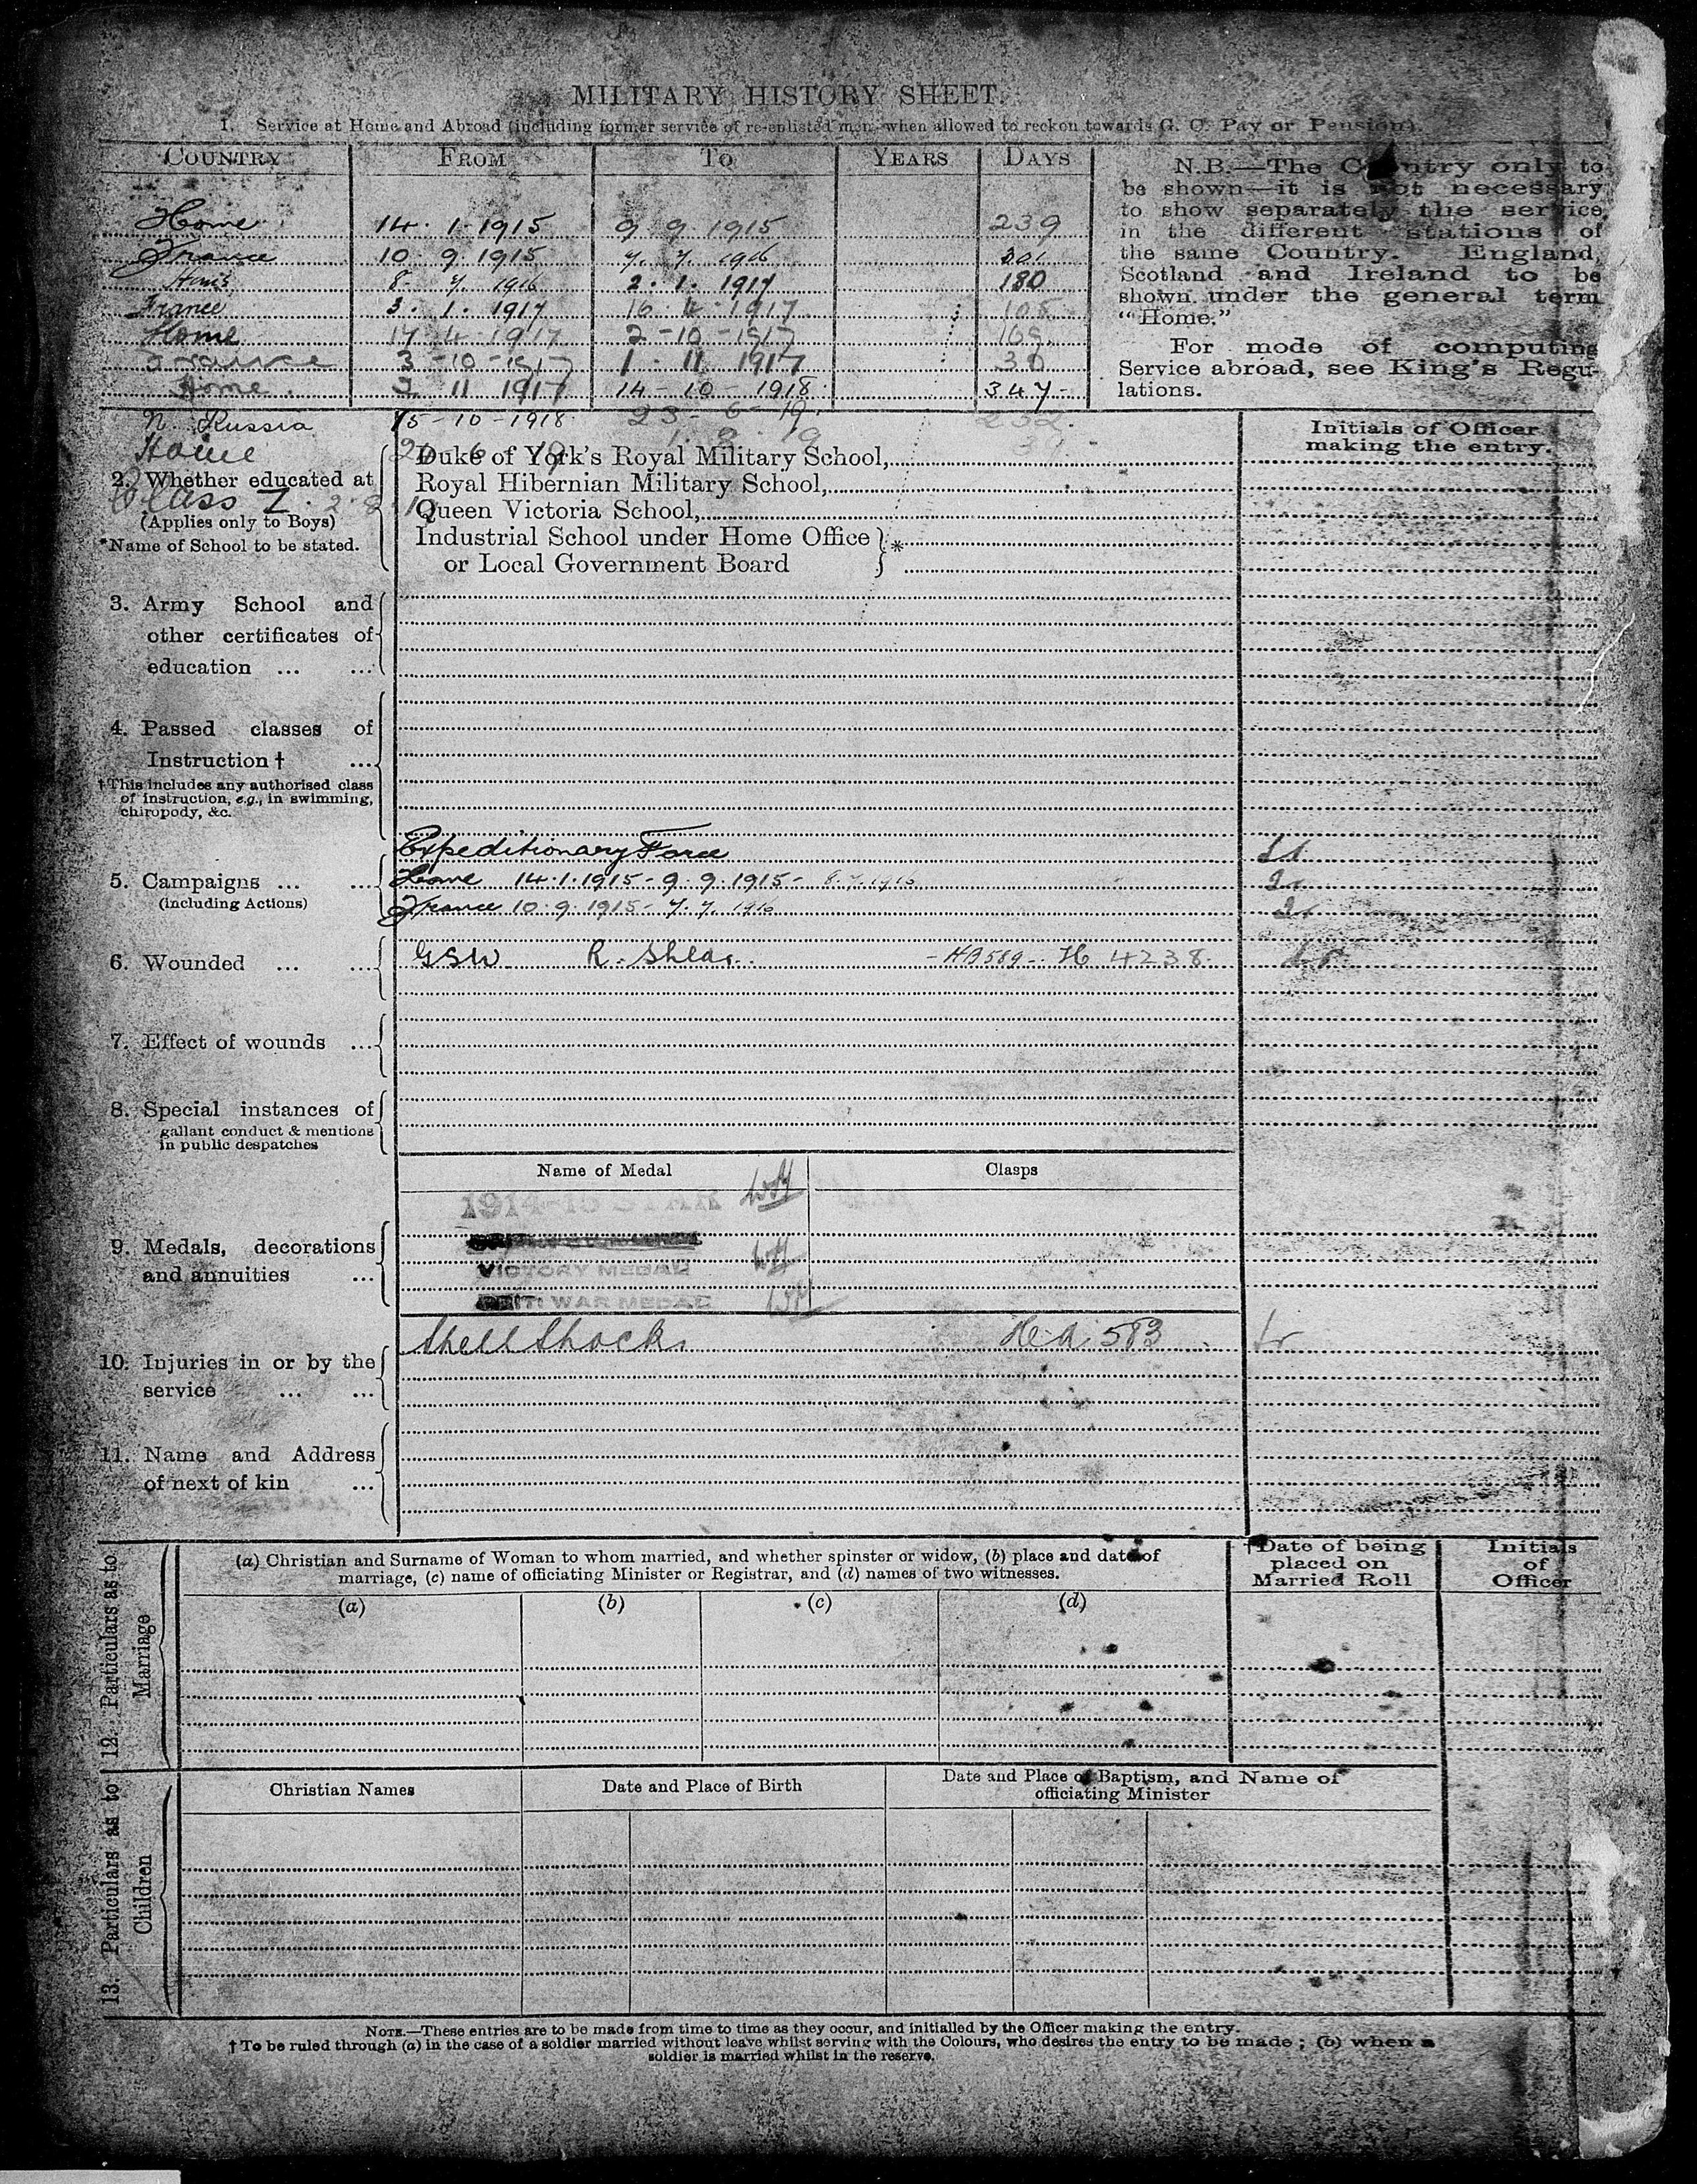 MILITARY HISTORY SHEET.
1. Service at Home and Abroad (including former service of re-enlisted men, when allowed to reckon towards G. C. Pay or Pension).
COUNTRY FROM TO YEARS DAYS
Home 14. 1. 1915 9 9 1915 239
France 10. 9. 1915 7. 7. 1916
8. 7. 1916 2. 1. 1917 180
France 3. 1. 1917 16 4 1917 105
Home 17 4 1917 2-10-1917 169
France 3-10-1917 1. 11 1917 30
Home. 2 11 1917 14-10-1918 347-
N. Russia 15-10-1918 23-6-19. 252.
Home 24 6 19 1. 8. 19 39.
Class Z. 2.8.19
N.B.—The Country only to
be shown—it is not necessary
to show separately the service
in the different stations of
the same Country. England,
Scotland and Ireland to be
shown under the general term
"Home."
For mode of computing
Service abroad, see King's Regu-
lations.
Initials of Officer
making the entry.
2. Whether educated at
(Applies only to Boys)
*Name of School to be stated.
Duke of York's Royal Military School,
Royal Hibernian Military School,
Queen Victoria School,
Industrial School under Home Office } *
or Local Government Board
3. Army School and
other certificates of
education ... ...
4. Passed classes of
Instruction † ...
†This includes any authorised class
of instruction, e.g., in swimming,
chiropody, &c.
Expeditionary Force
5. Campaigns ... ...
(including Actions)
Home 14.1.1915-9.9.1915- 8.7.1916
France 10.9.1915- 7.7.1916
6. Wounded ... ...
GSW R. Shldr. -HB589-. H 4238.
7. Effect of wounds ...
8. Special instances of
gallant conduct & mentions
in public despatches
Name of Medal Clasps
1914-15 STAR
9. Medals, decorations
and annuities ...
VICTORY MEDAL
BRIT: WAR MEDAL
Shell Shock. 583
10. Injuries in or by the
service ... ...
11. Name and Address
of next of kin ...
12. Particulars as to
Marriage
(a) Christian and Surname of Woman to whom married, and whether spinster or widow, (b) place and date of
marriage, (c) name of officiating Minister or Registrar, and (d) names of two witnesses.
†Date of being
placed on
Married Roll
Initials
of
Officer
(a) (b) (c) (d)
13. Particulars as to
Children
Christian Names Date and Place of Birth
Date and Place of Baptism, and Name of
officiating Minister
NOTE.—These entries are to be made from time to time as they occur, and initialled by the Officer making the entry.
†To be ruled through (a) in the case of a soldier married without leave whilst serving with the Colours, who desires the entry to be made; (b) when a
soldier is married whilst in the reserve.